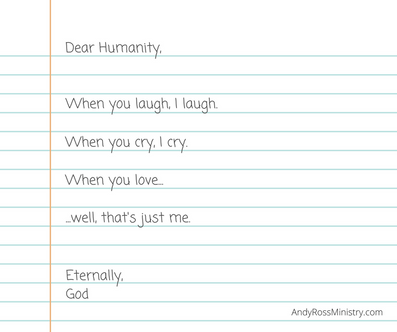 Dear Humanity,
When you laugh, I laugh.
When you cry, I cry.
When you love...
...well, that's just me.
Eternally,
God
AndyRossMinistry.com